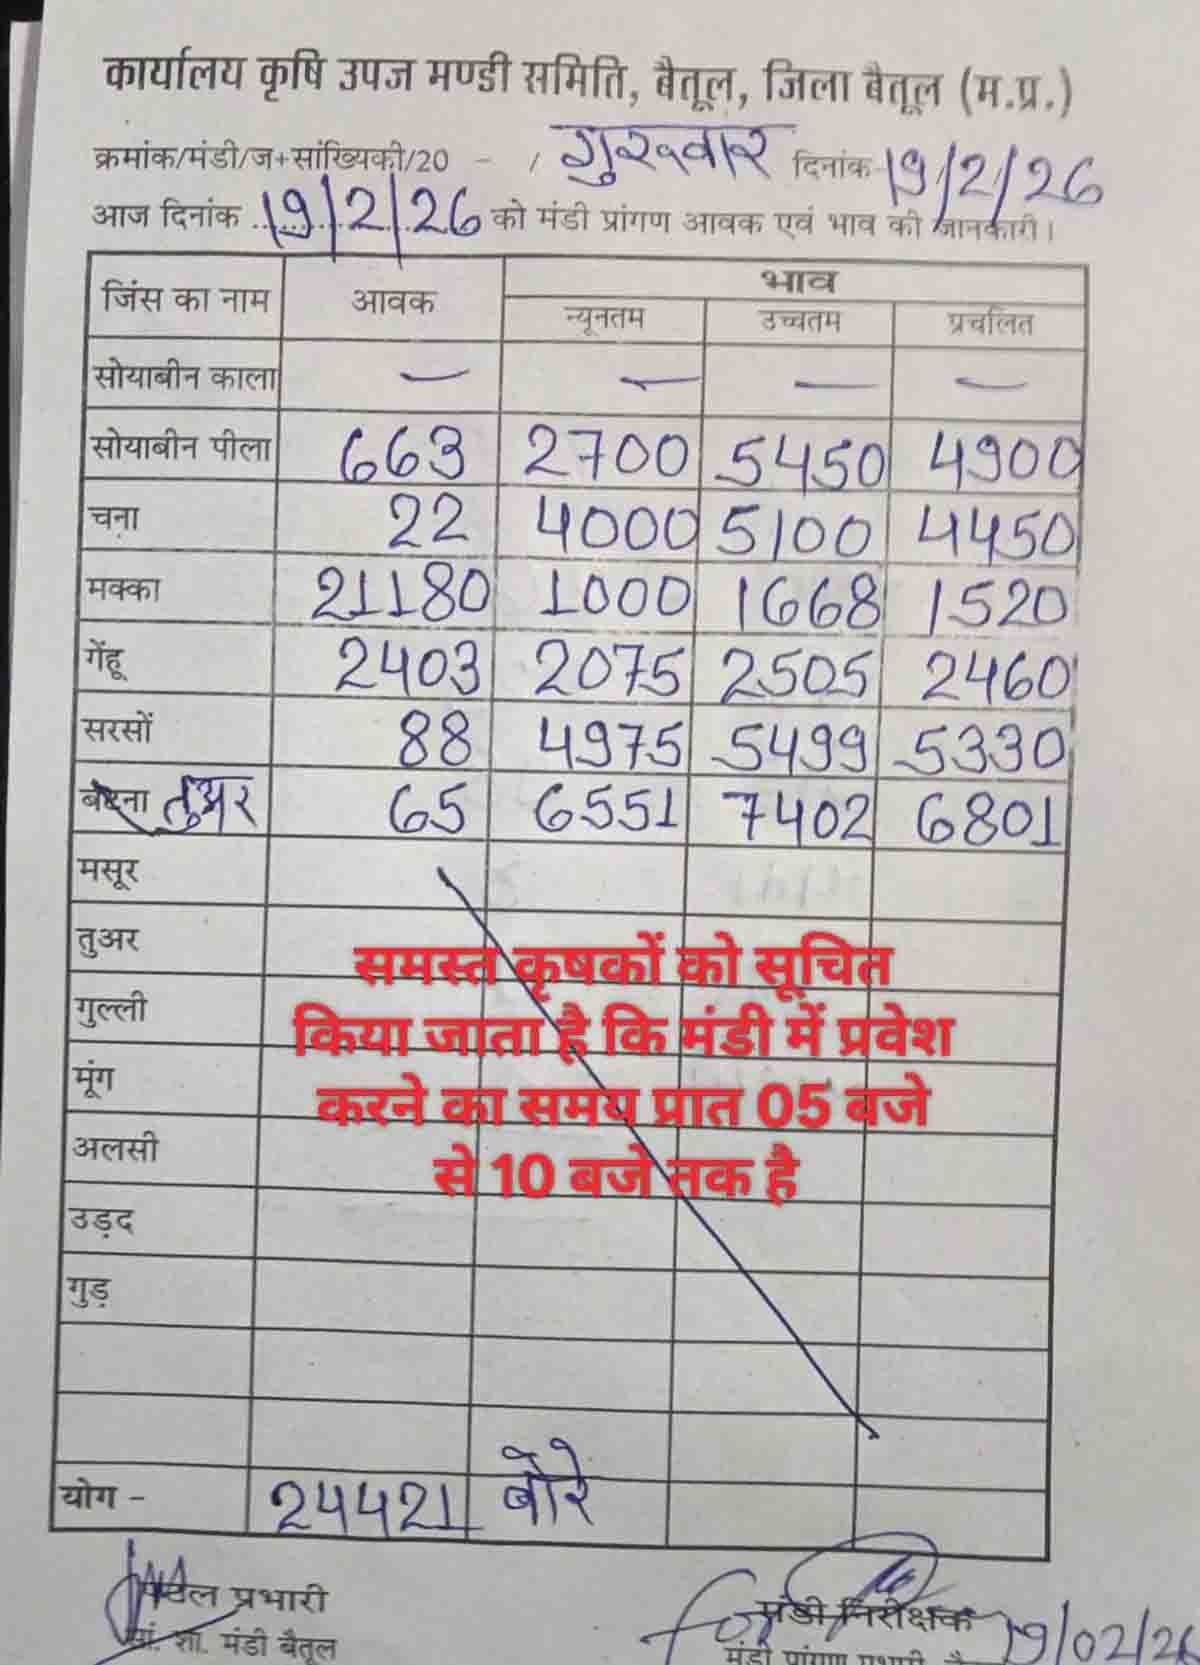 कार्यालय कृषि उपज मण्डी समिति, बैतूल, जिला बैतूल (म.प्र.)
क्रमांक/मंडी/ज+सांख्यिकी/20 - / गुरुवार दिनांक 19/2/26
आज दिनांक 19/2/26 को मंडी प्रांगण आवक एवं भाव की जानकारी।
जिंस का नाम आवक भाव
न्यूनतम उच्चतम प्रचलित
सोयाबीन काला — — — —
सोयाबीन पीला 663 2700 5450 4900
चना 22 4000 5100 4450
मक्का 21180 1000 1668 1520
गेंहू 2403 2075 2505 2460
सरसों 88 4975 5499 5330
तुअर 65 6551 7402 6801
मसूर
तुअर
गुल्ली
मूंग
अलसी
उड़द
गुड़
समस्त कृषकों को सूचित
किया जाता है कि मंडी में प्रवेश
करने का समय प्रात 05 बजे
से 10 बजे तक है
योग - 24421 बोरे
प्रभारी मंडी निरीक्षक 19/02/26
मंडी बैतूल मंडी प्रांगण प्रभारी